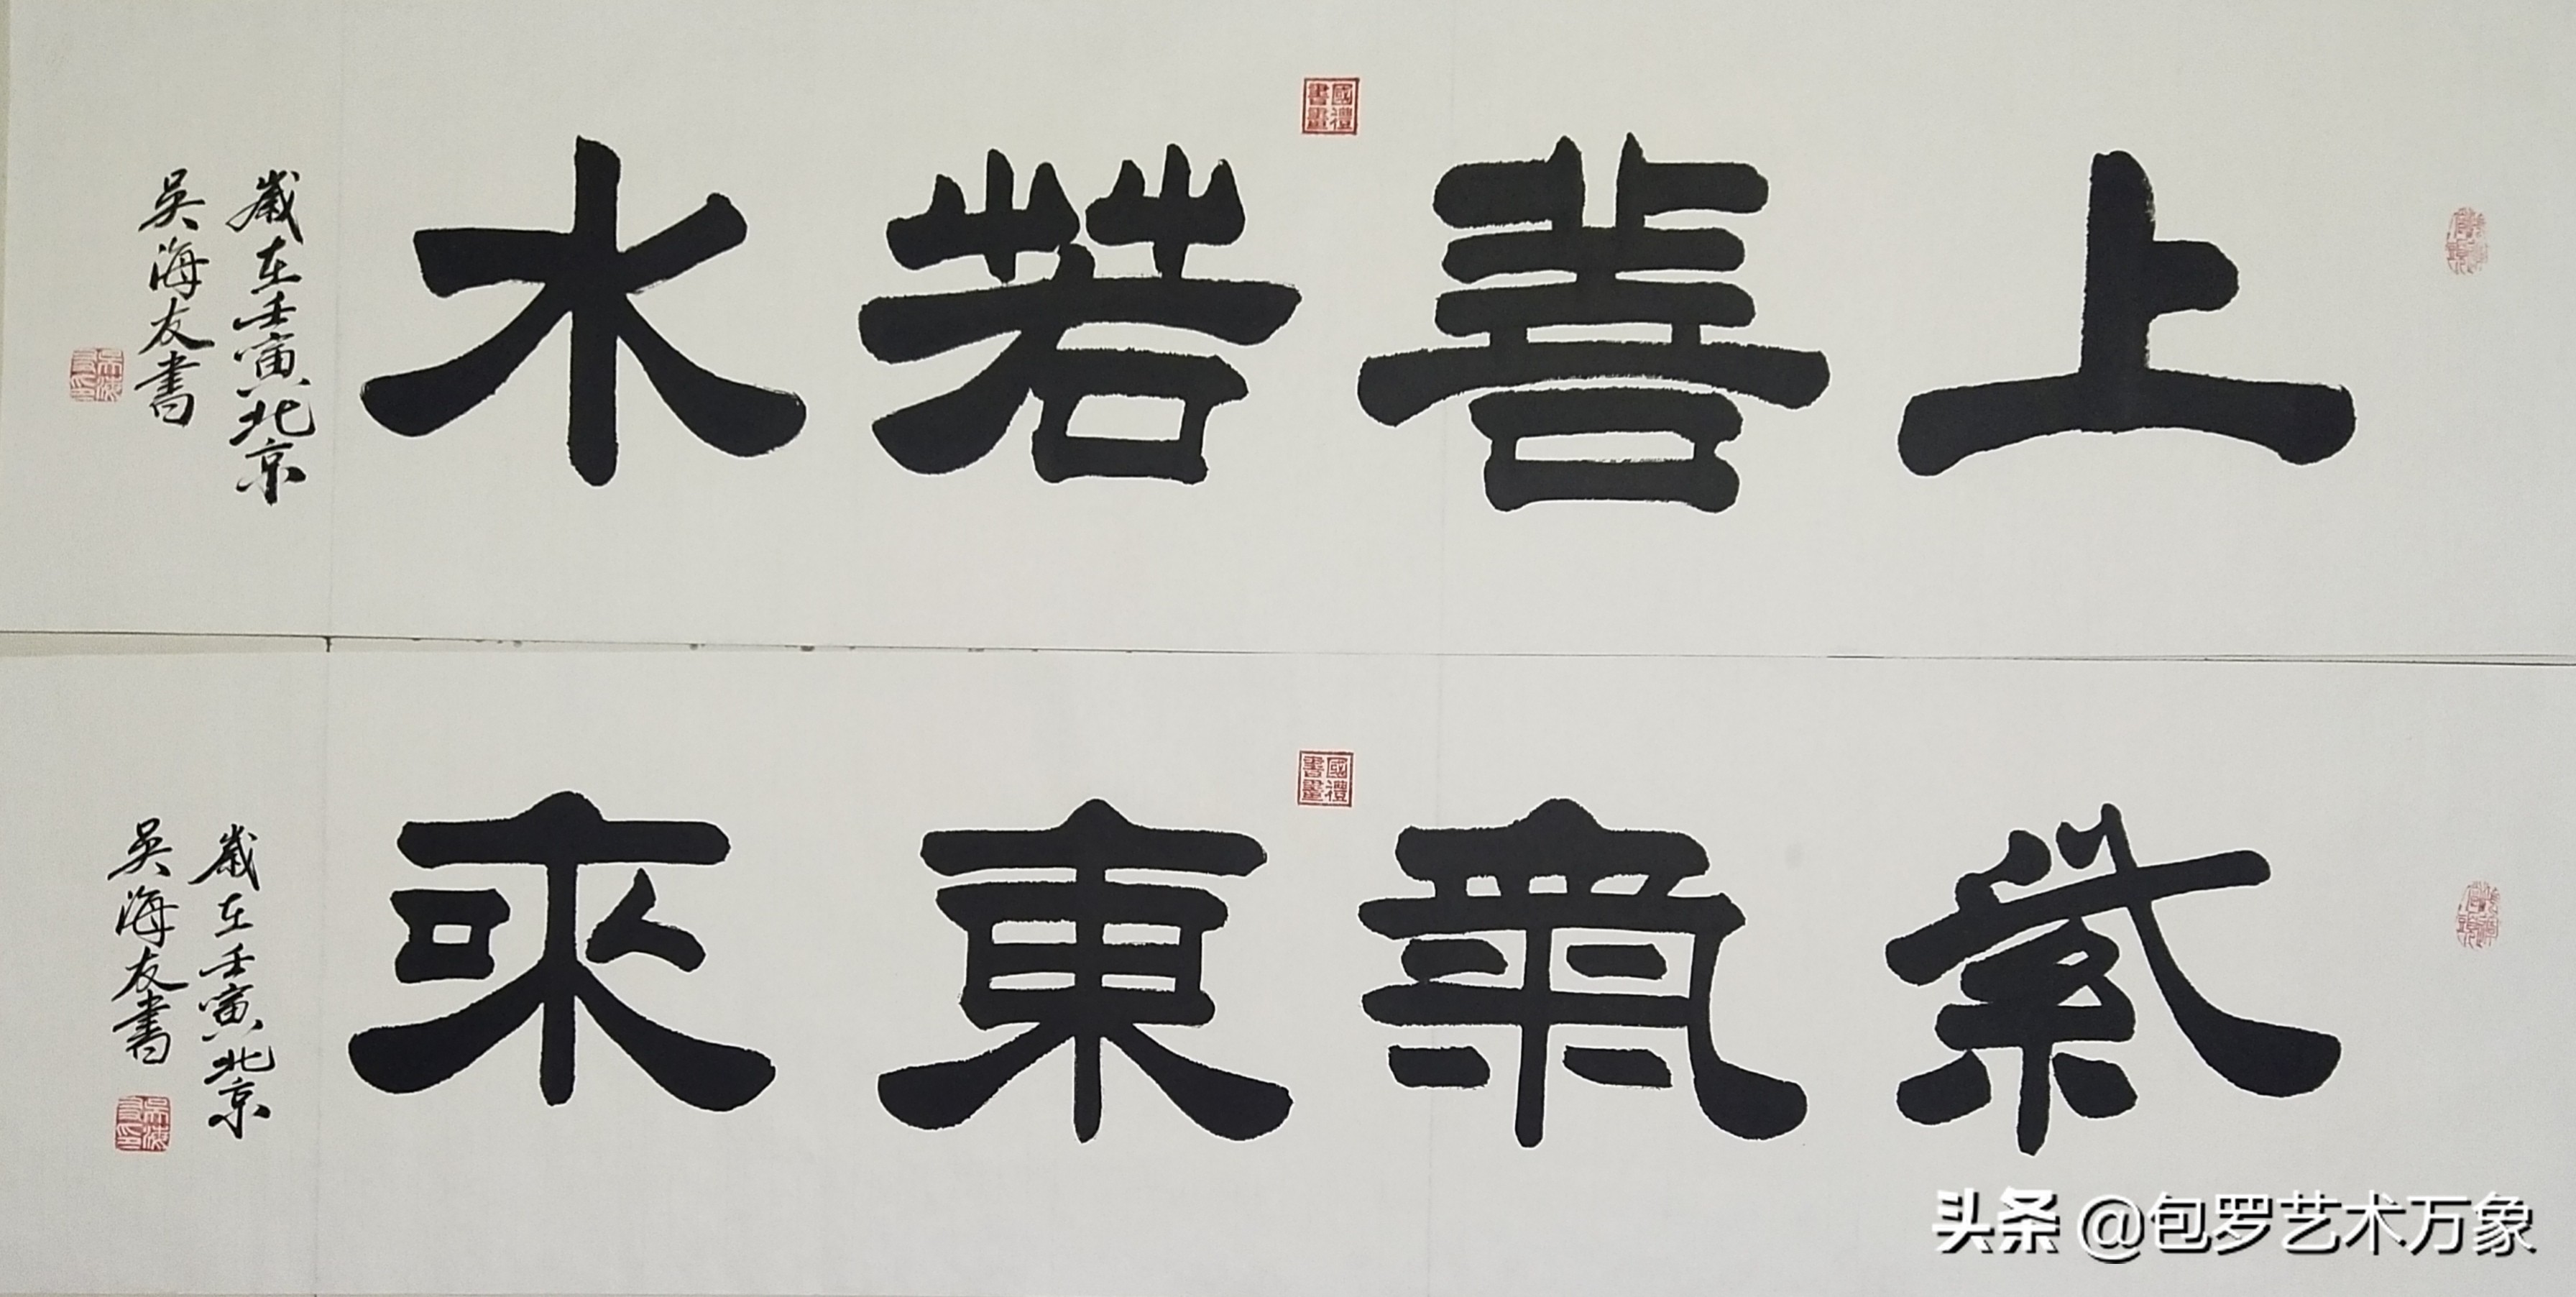 上善若水
國禮書畫
歲在壬寅北京
吳海友書
紫氣東來
國禮書畫
歲在壬寅北京
吳海友書
头条 @包罗艺术万象